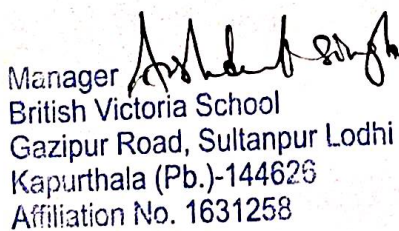 Manager
British Victoria School
Gazipur Road, Sultanpur Lodhi
Kapurthala (Pb.)-144626
Affiliation No. 1631258